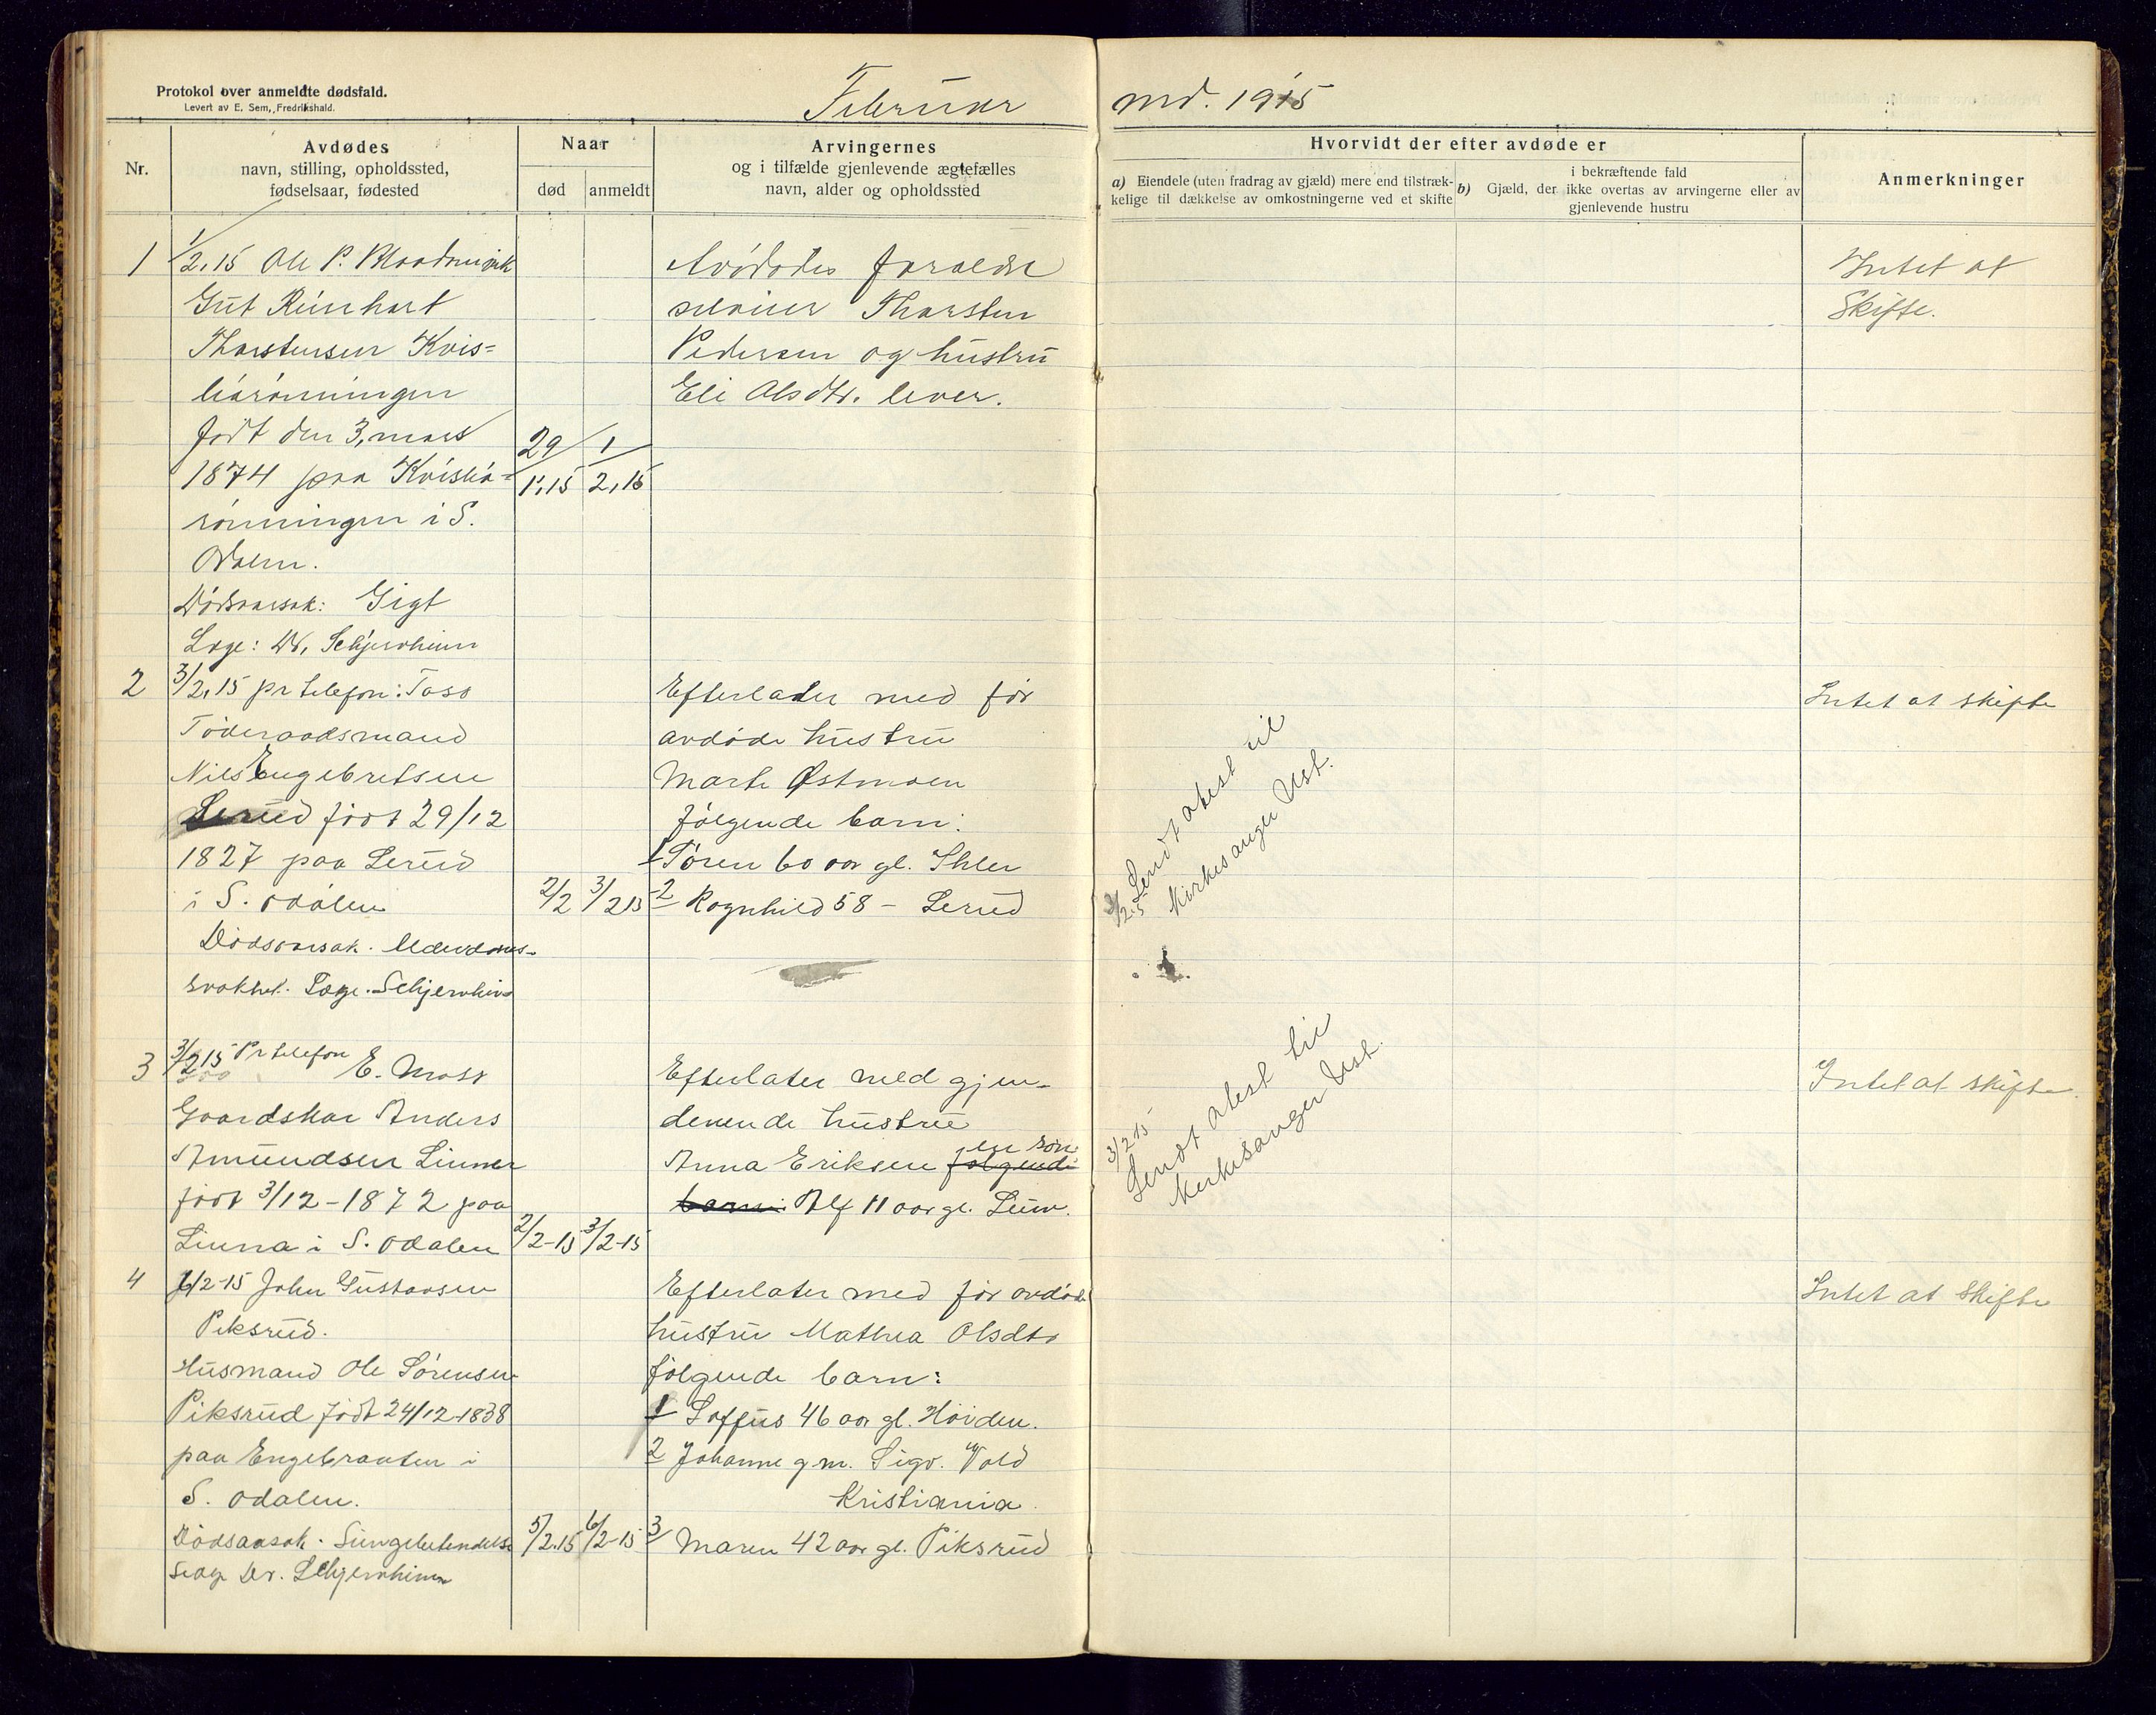 Protokol over anmeldte dødsfald.
Levert av E. Sem, Fredrikshald.
Februar md. 1915
Nr.
Avdødes
navn, stilling, opholdssted,
fødselsaar, fødested
Naar
død
anmeldt
Arvingernes
og i tilfælde gjenlevende ægtefælles
navn, alder og opholdssted
Hvorvidt der efter avdøde er
a) Eiendele (uten fradrag av gjæld) mere end tilstræk-
kelige til dækkelse av omkostningerne ved et skifte
i bekræftende fald
b) Gjæld, der ikke overtas av arvingerne eller av
gjenlevende hustru
Anmerkninger
1
1/2.15 Ole P.
Gut Reinhart
Thorstensen Kvis=
liarønningen
født den 3, mars
1874 paa Kvislia=
rønningen i S.
Odalen.
Dødsaarsak: Gigt
Læge: Dr, Schjervheim
29/1.15
1/2,15
Avdødes foreldre
Thorsten
Pedersen og hustru
Eli Olsdtr. lever.
Intet at
Skifte.
2
3/2,15 pr telefon:
Nils Engebretsen
Lerud født 29/12
1827 paa Lerud
i S. Odalen
Dødsaarsak. Alderdoms-
svakhet. Læge. Schjervheim
2/2
3/2 15
Efterlater med før
avdøde hustru
Marte Østmoen
følgende barn:
1 Søren 60 aar gl. Ihler
2 Ragnhild 58 – Lerud
3/2 15 Sendt atest til
Kirkesanger Ust.
Intet at skifte
3
3/2 15 Pr telefon E. Moss
Gaardskar Anders
Amundsen Linner
født 3/12-1872 paa
Linna i S. Odalen
2/2-15
3/2-15
Efterlater med gjen-
levende hustru
Anna Eriksen følgende en søn
barn: Alf 11 aar gl. Linn.
3/2 15
Sendt atest til
Kirkesanger Ust.
Intet at skifte.
4
6/2-15 John Gustavsen
Piksrud.
Husmand Ole Sørensen
Piksrud født 24/12-1838
paa Engebraaten i
S. Odalen.
Dødsaasak. Lungebetendelse
Læge Dr. Schjervheim
5/2.15
6/2-15
Efterlater med før avdøde
hustru Mathea Olsdtr
følgende barn:
1 Loffus 46 aar gl. Høiden.
2 Johanne g m. Sigv. Vold
Kristiania.
3 Maren 42 aar gl. Piksrud
Intet at Skifte